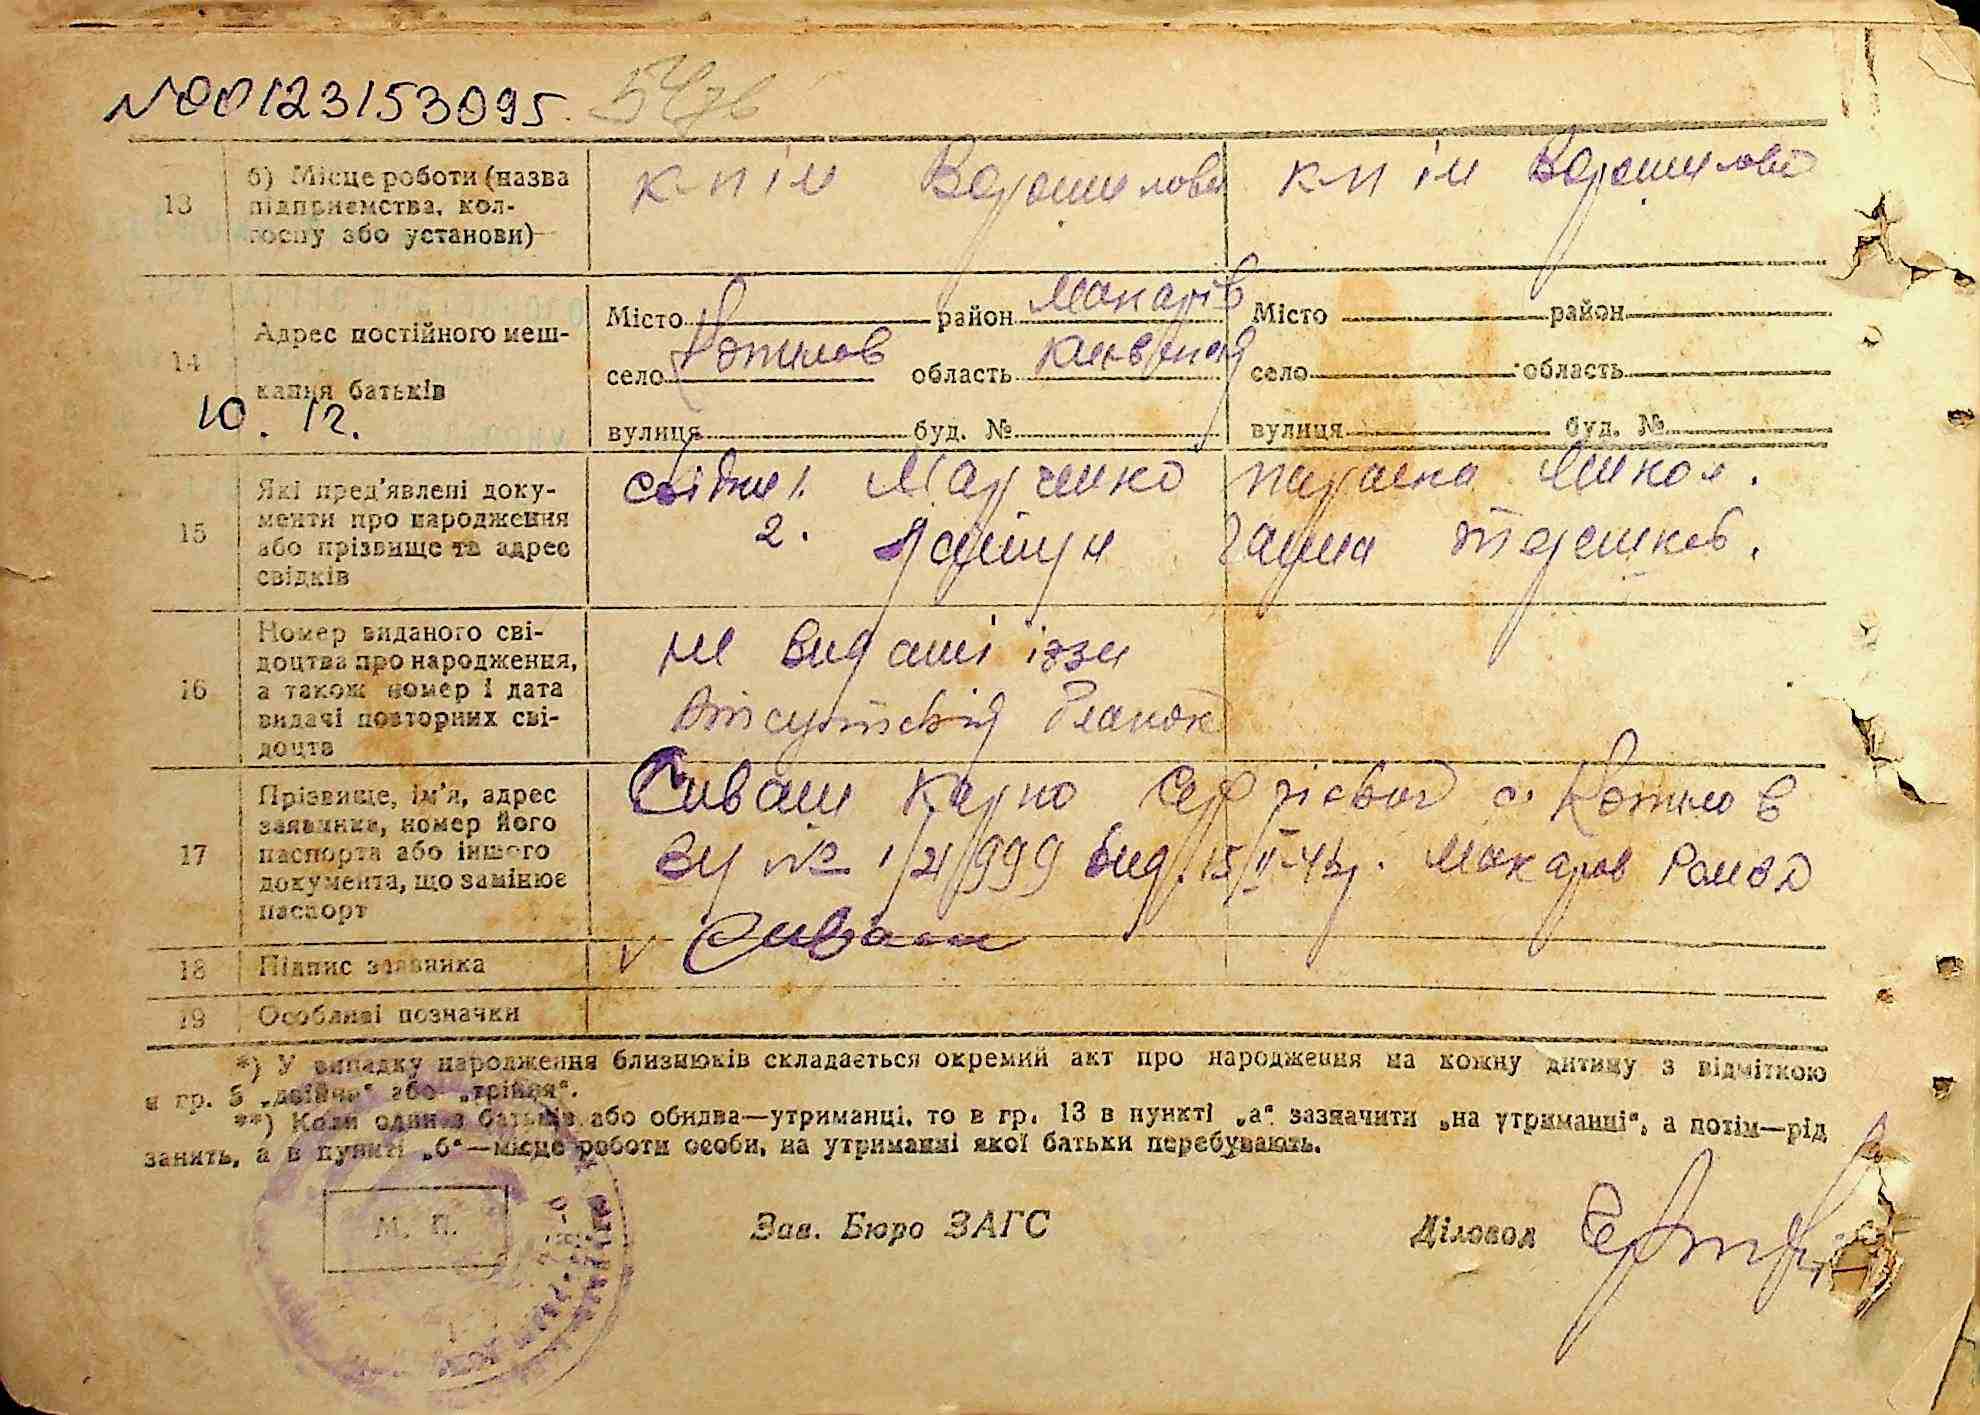 №00123153095.
13
б) Місце роботи (назва підприємства, колгоспу або установи)
к-п ім Ворошилова
к-п ім Ворошилова
14
Адрес постійного мешкання батьків
10.12.
Місто район Макарів
село Комилов область Київська
вулиця буд. №
Місто район
село область
вулиця буд. №
15
Які пред'явлені документи про народження або прізвище та адрес свідків
свідки 1. Марченко параска Микол.
2. Ящун Ганна
16
Номер виданого свідоцтва про народження, а також номер і дата видачі повторних свідоцтв
не видані із за
отсутствія бланок
17
Прізвище, ім'я, адрес заявника, номер його паспорта або іншого документа, що замінює паспорт
Сиваш Карпо с.
№ 1/21/999 вид. 15/II-4 Макаров
18
Підпис заявника
v Сиваш
19
Особливі позначки
*) У випадку народження близнюків складається окремий акт про народження на кожну дитину з відміткою
в гр. 5 „двійня“ або „трійня“.
**) Коли один з батьків або обидва—утриманці, то в гр. 13 в пункті „а“ зазначити „на утриманні“, а потім—рід
занять, а в пункті „б“—місце роботи особи, на утриманні якої батьки перебувають.
М. П.
Зав. Бюро ЗАГС
Діловод